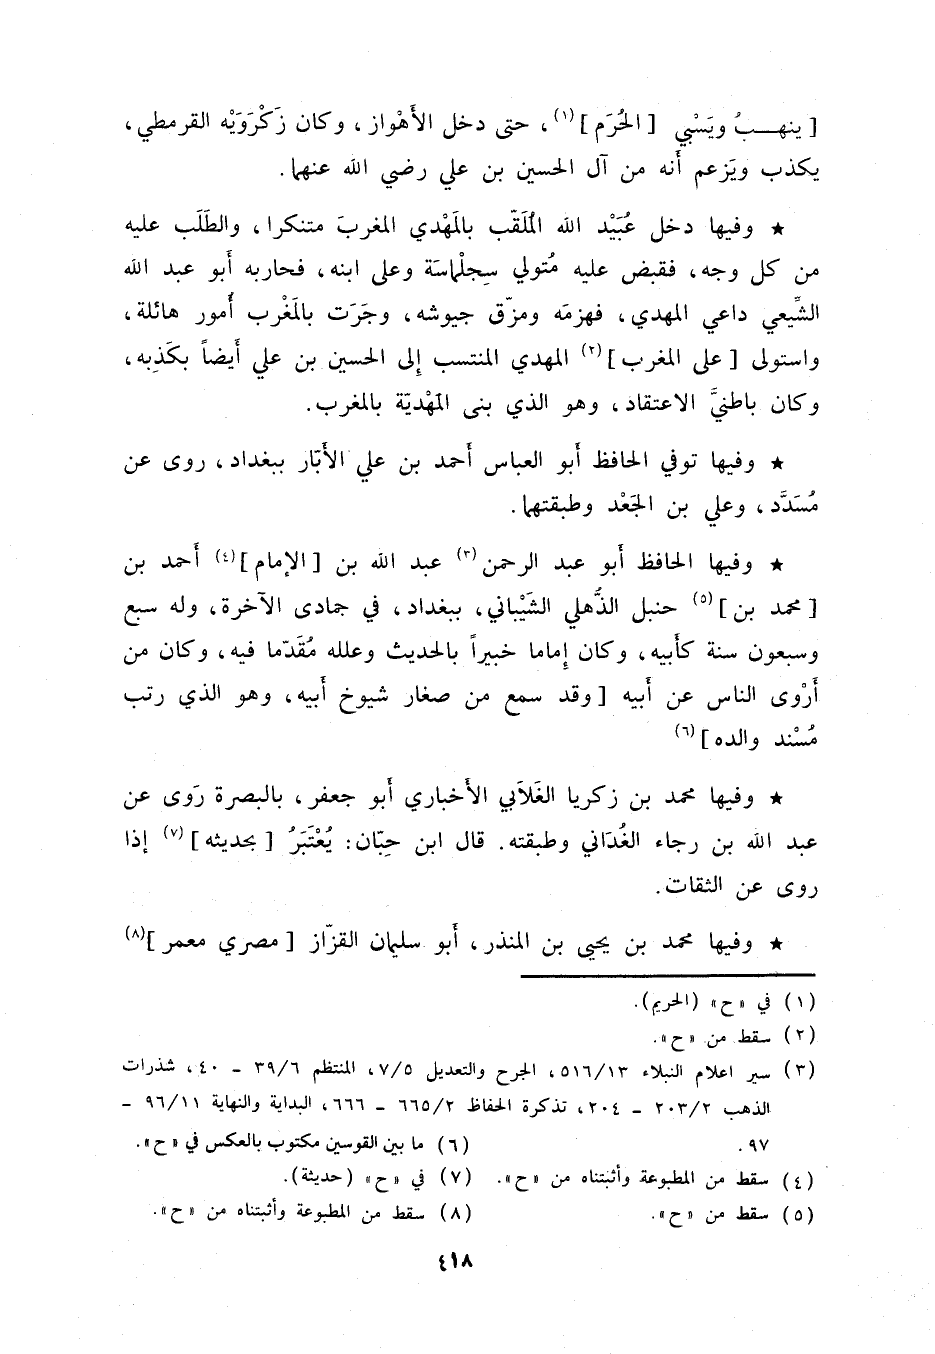 [ ينهــبُ ويَسْبي [ الحُرَم ](١)، حتى دخل الأَهْواز، وكان زَكْرَوَيْه القرمطي،
يكذب ويَزعم أنه من آل الحسين بن علي رضي الله عنهما.
★ وفيها دخل عُبَيْد الله المُلَقّب بالمَهْدي المغربَ متنكرا، والطَلَب عليه
من كل وجه، فقبض عليه مُتولي سِجِلْماسَة وعلى ابنه، فحاربه أبو عبد الله
الشِّيعي داعي المهدي، فهزمَه ومزّق جيوشه، وجَرَت بالمَغْرب أُمور هائلة،
واستولى [ على المغرب ](٢) المهدي المنتسب إلى الحسين بن علي أيضاً بكَذِبه،
وكان باطنيَّ الاعتقاد، وهو الذي بنى المَهْديّة بالمغرب.
★ وفيها توفي الحافظ أبو العباس أحمد بن علي الأبّار ببغداد، روى عن
مُسَدَّد، وعلي بن الجَعْد وطبقتهما.
★ وفيها الحافظ أبو عبد الرحمن(٣) عبد الله بن [ الإمام ](٤) أحمد بن
[ محمد بن ](٥) حنبل الذُّهلي الشَيْباني، ببغداد، في جمادى الآخرة، وله سبع
وسبعون سنة كأبيه، وكان إماما خبيراً بالحديث وعلله مُقَدّما فيه، وكان من
أَرْوى الناس عن أبيه [ وقد سمع من صغار شيوخ أبيه، وهو الذي رتب
مُسْند والده ](٦)
★ وفيها محمد بن زكريا الغَلاَبي الأخباري أبو جعفر، بالبصرة رَوى عن
عبد الله بن رجاء الغُدَاني وطبقته. قال ابن حِبّان: يُعْتَبَرُ [ بحديثه ](٧) إذا
روى عن الثقات.
★ وفيها محمد بن يحيى بن المنذر، أبو سليمان القزّاز [ مصري معمر ](٨)
(١) في «ح» (الحريم).
(٢) سقط من «ح».
(٣) سير اعلام النبلاء ٥١٦/١٣، الجرح والتعديل ٧/٥، المنتظم ٣٩/٦ - ٤٠، شذرات
الذهب ٢٠٣/٢ - ٢٠٤، تذكرة الحفاظ ٦٦٥/٢ - ٦٦٦، البداية والنهاية ٩٦/١١ -
٩٧.
(٤) سقط من المطبوعة وأثبتناه من «ح».
(٥) سقط من «ح».
(٦) ما بين القوسين مكتوب بالعكس في «ح».
(٧) في «ح» (حديثة).
(٨) سقط من المطبوعة وأثبتناه من «ح».
٤١٨